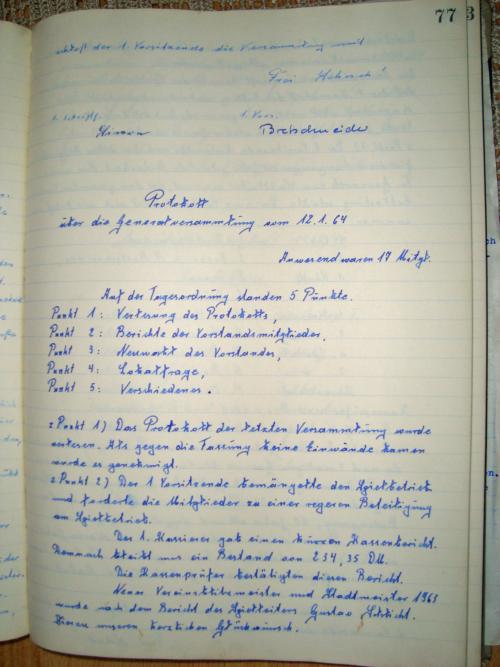 77
schloß der 1. Vorsitzende die Versammlung mit
Frei Holz!
1. Schriftf. 1. Vors.
Protokoll
über die Generalversammlung vom 12.1.64
Anwesend waren 17 Mitgl.
Auf der Tagesordnung standen 5 Punkte.
Punkt 1: Verlesung des Protokolls,
Punkt 2: Berichte der Vorstandsmitglieder,
Punkt 3: Neuwahl des Vorstandes,
Punkt 4: Lokalfrage,
Punkt 5: Verschiedenes.
z Punkt 1) Das Protokoll der letzten Versammlung wurde
verlesen. Als gegen die Fassung keine Einwände kamen
wurde es genehmigt.
z Punkt 2) Der 1 Vorsitzende bemängelte den Spielbetrieb
und forderte die Mitglieder zu einer regeren Beteiligung
am Spielbetrieb.
Der 1. Kassierer gab einen kurzen Kassenbericht.
Demnach bleibt uns ein Bestand von 234,35 DM.
Die Kassenprüfer bestätigten diesen Bericht.
Neuer Vereinsblitzmeister und Stadtmeister 1963
wurde nach dem Bericht des Spielleiters Gustav
Diesen unseren herzlichen Glückwunsch.